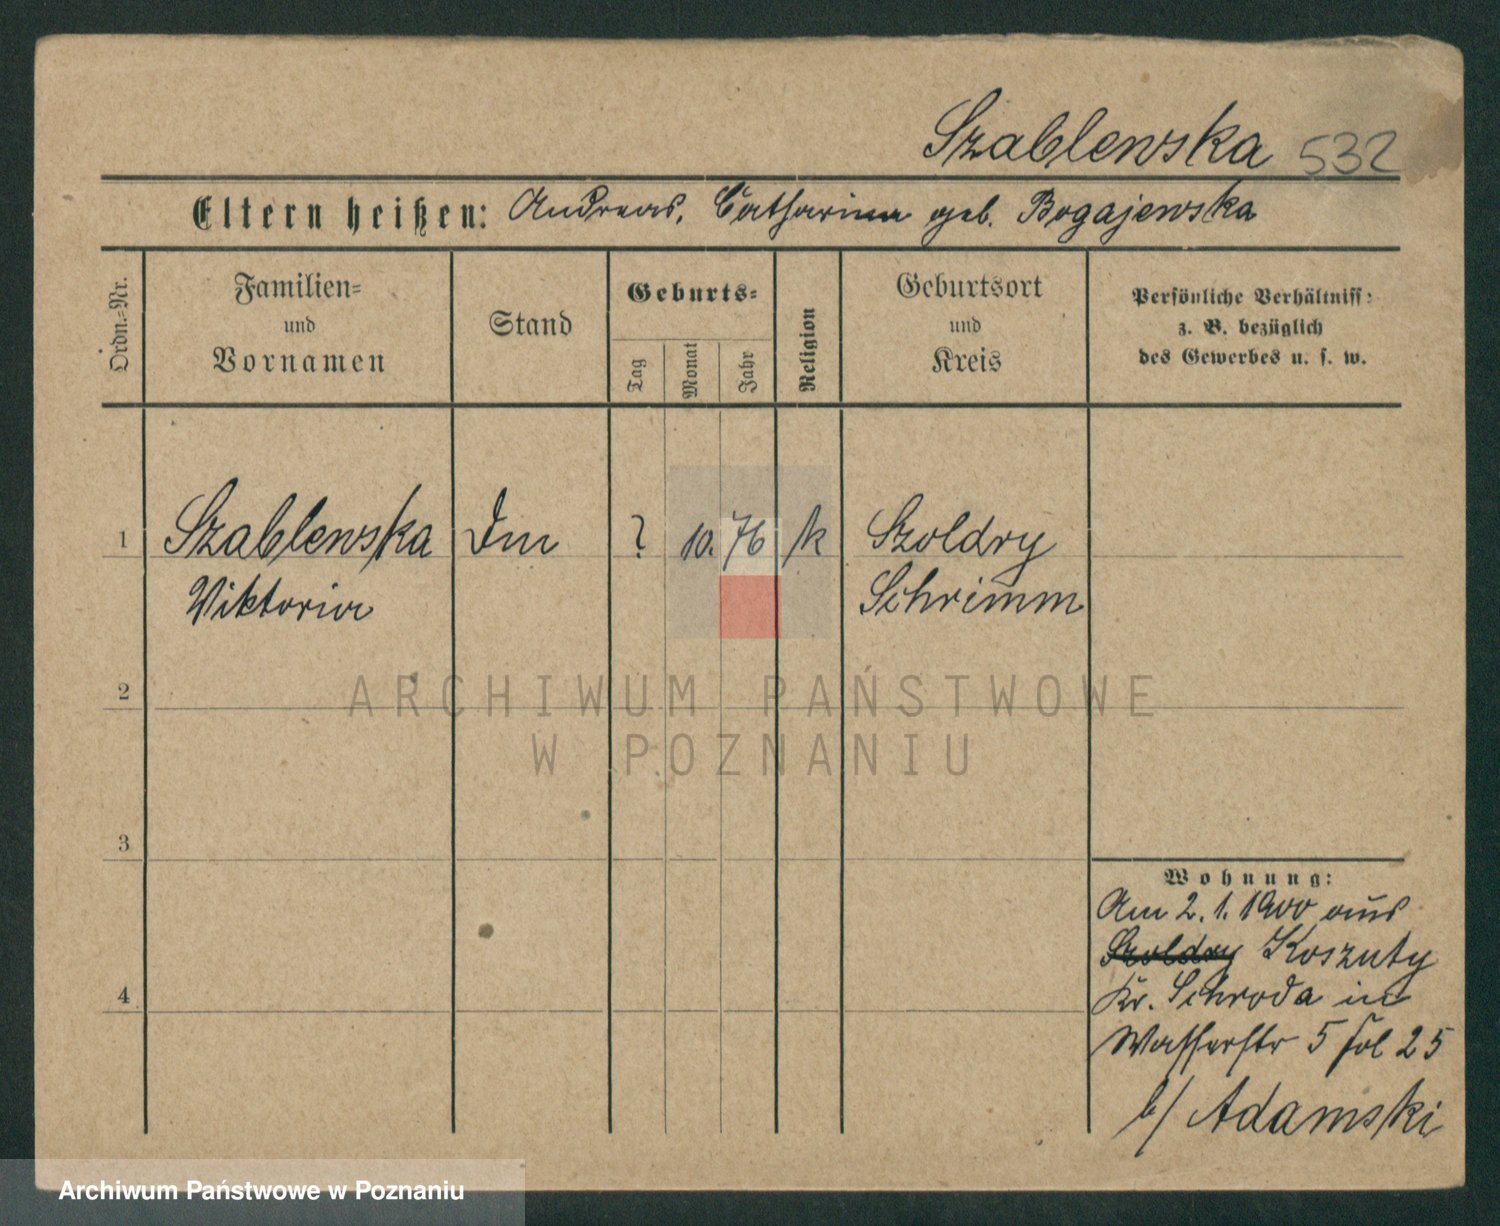 Szablewska 532
Eltern heißen: Andreas, Catharina geb. Bogajewska
Ordn.-Nr.
Familien-
und
Vornamen
Stand
Geburts-
Tag
Monat
Jahr
Religion
Geburtsort
und
Kreis
Persönliche Verhältniss:
z. B. bezüglich
des Gewerbes u. s. w.
1 Szablewska ? 10. 76 k Szoldry
Viktoria Schrimm
2
3
4
Wohnung:
Am 2. 1. 1900 aus
Szoldry Koszuty
Kr. Schroda in
Wasserstr 5 fol 25
b/ Adamski
ARCHIWUM PAŃSTWOWE
W POZNANIU
Archiwum Państwowe w Poznaniu